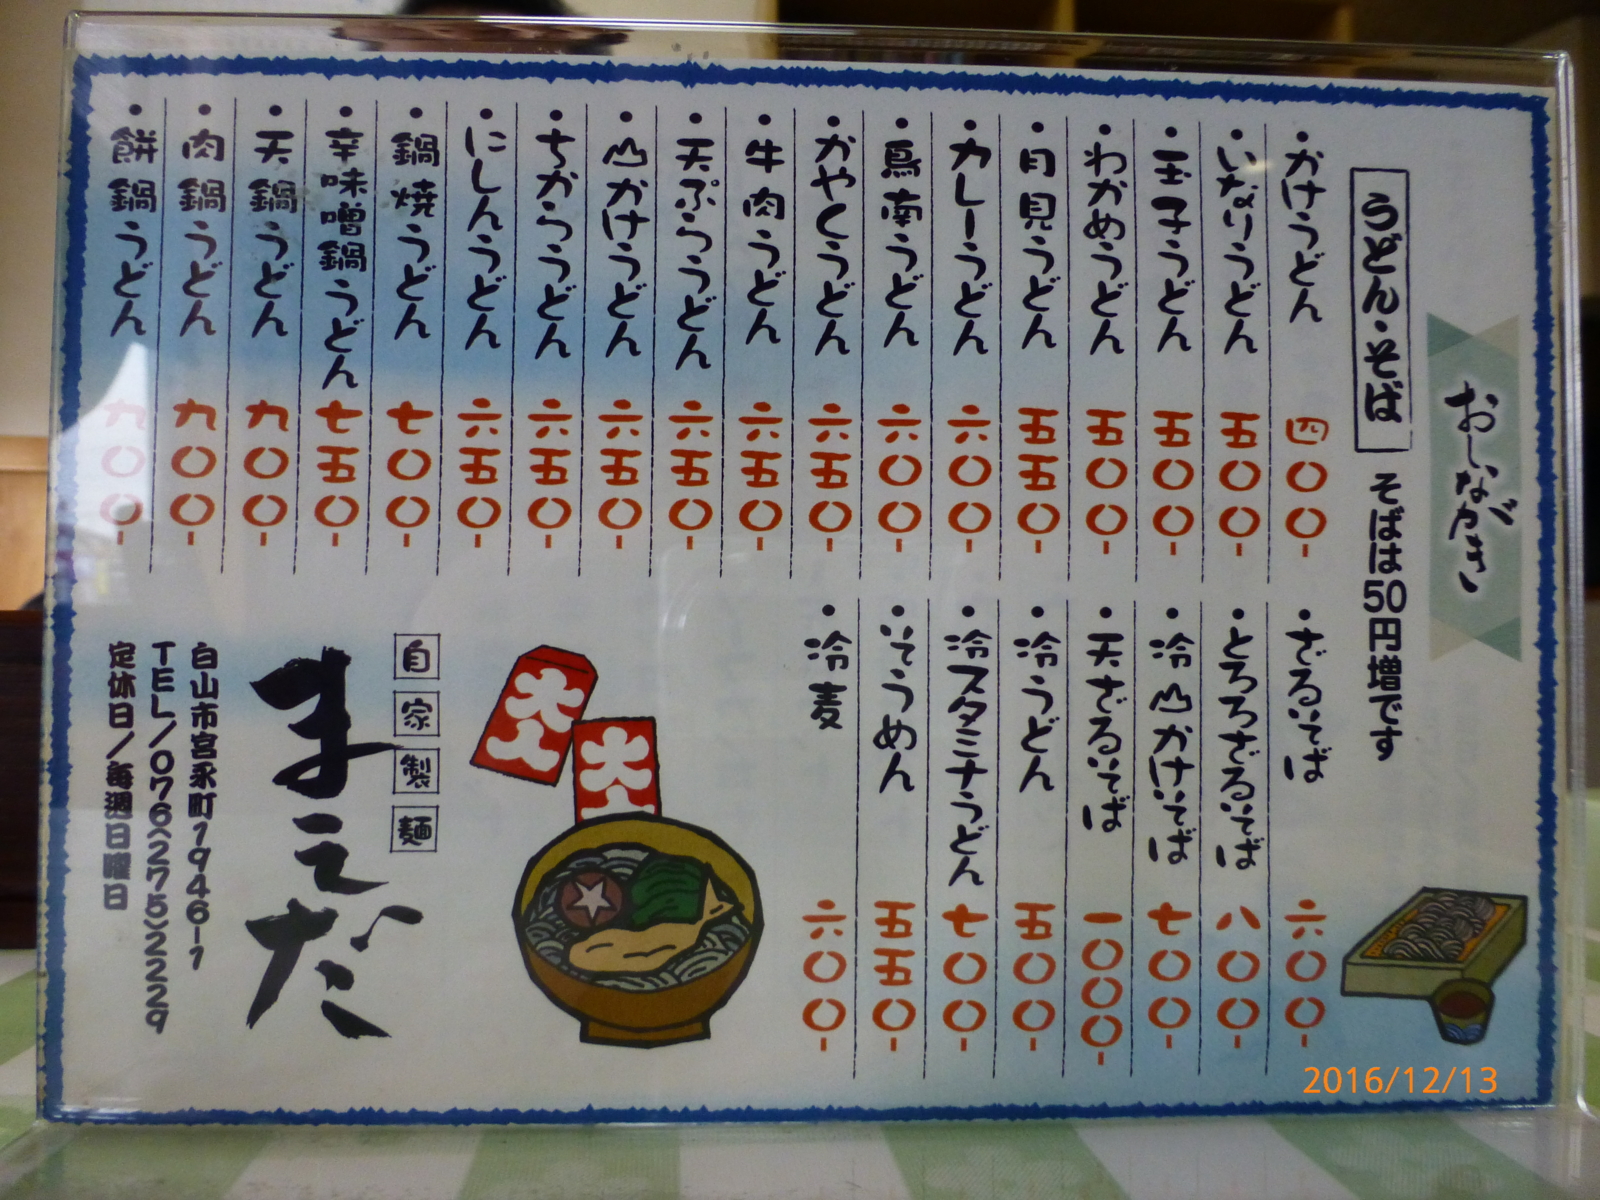 おしながき
うどん・そば そばは50円増です
・かけうどん 四〇〇-
・いなりうどん 五〇〇-
・玉子うどん 五〇〇-
・わかめうどん 五〇〇-
・月見うどん 五五〇-
・カレーうどん 六〇〇-
・鳥南うどん 六〇〇-
・かやくうどん 六五〇-
・牛肉うどん 六五〇-
・天ぷらうどん 六五〇-
・山かけうどん 六五〇-
・ちからうどん 六五〇-
・にしんうどん 六五〇-
・鍋焼うどん 七〇〇-
・辛味噌鍋うどん 七五〇-
・天鍋うどん 九〇〇-
・肉鍋うどん 九〇〇-
・餅鍋うどん 九〇〇-
・ざるそば 六〇〇-
・とろろざるそば 八〇〇-
・冷山かけそば 七〇〇-
・天ざるそば 一〇〇〇-
・冷うどん 五〇〇-
・冷スタミナうどん 七〇〇-
・そうめん 五五〇-
・冷麦 六〇〇-
大入
大入
自家製麺
まえだ
白山市宮永町1946-1
TEL/076(275)2229
定休日/毎週日曜日
2016/12/13